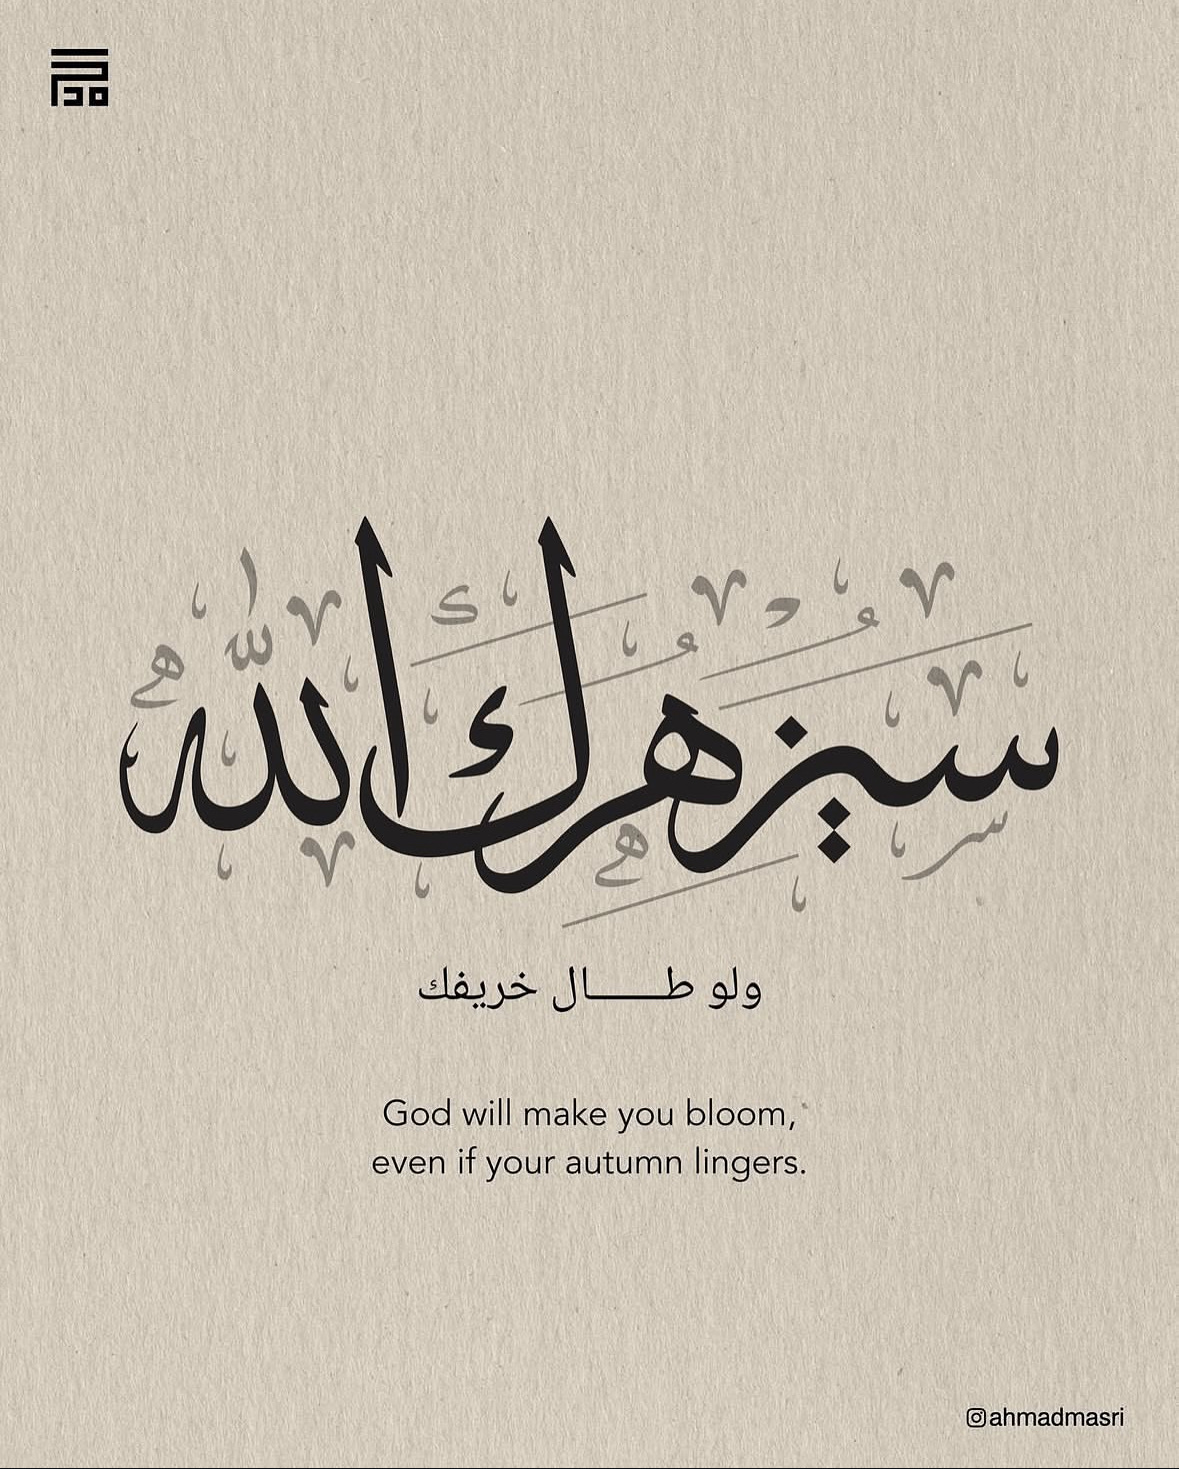 سيزهرك الله
ولو طـــــال خريفك
God will make you bloom,
even if your autumn lingers.
ahmadmasri